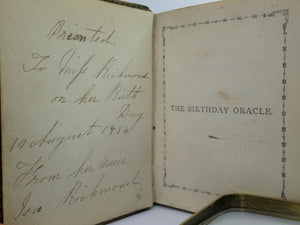 Presented
To Miss Richmond
on her Birth
Day
10 August 1884
From her niece
Isa Richmond
THE BIRTHDAY ORACLE.